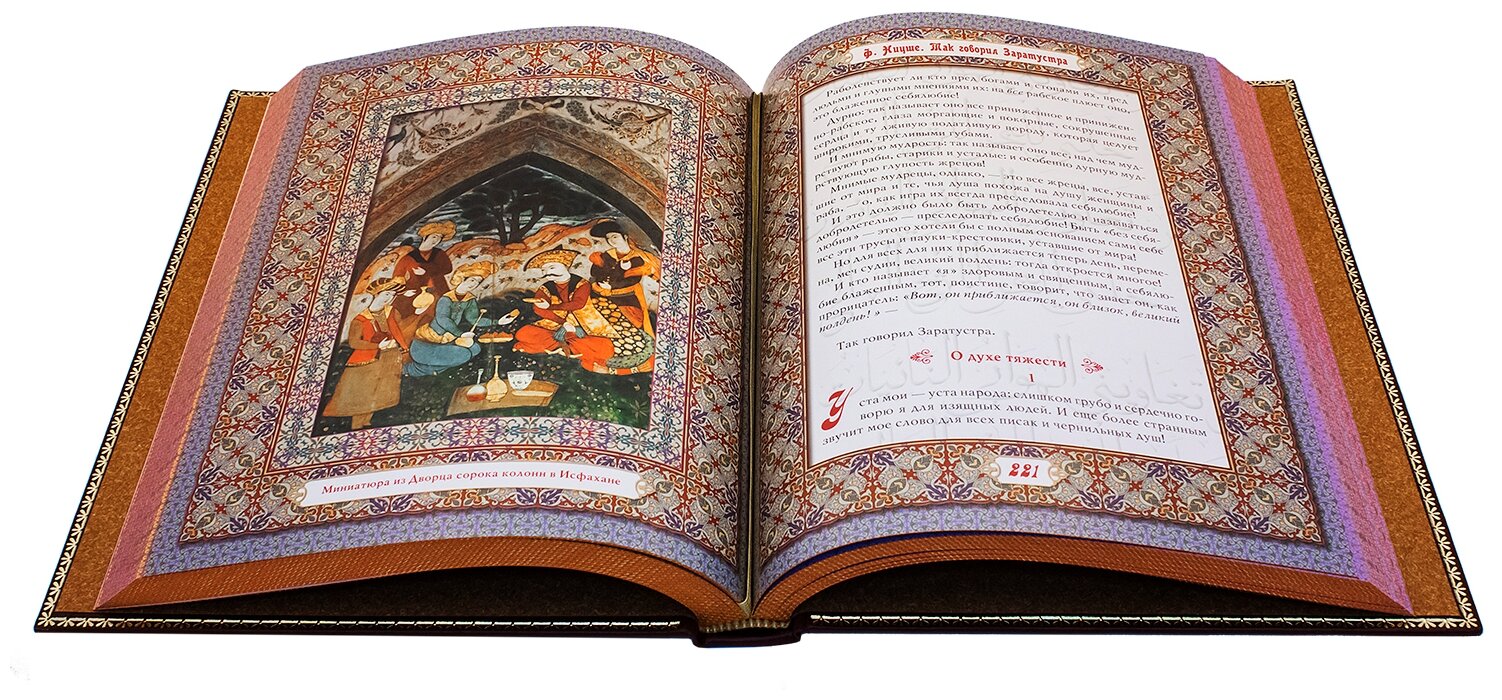 Миниатюра из Дворца сорока колонн в Исфахане
Ф. Ницше. Так говорил Заратустра
Раболепствует ли кто пред богами и стопами их, пред
людьми и глупыми мнениями их: на все рабское плюет оно,
это блаженное себялюбие!
Дурно: так называет оно все приниженное и принижен-
но-рабское, глаза моргающие и покорные, сокрушенные
сердца и ту лживую податливую породу, которая целует
широкими, трусливыми губами.
И мнимую мудрость: так называет оно все, над чем муд-
рствуют рабы, старики и усталые: и особенно дурную муд-
рствующую глупость жрецов!
Мнимые мудрецы, однако, — это все жрецы, все, устав-
шие от мира и те, чья душа похожа на душу женщины и
раба, — о, как игра их всегда преследовала себялюбие!
И это должно было быть добродетелью и называться
добродетелью — преследовать себялюбие! Быть «без себя-
любия» — этого хотели бы с полным основанием сами себе
все эти трусы и пауки-крестовики, уставшие от мира!
Но для всех для них приближается теперь день, переме-
на, меч судии, великий полдень: тогда откроется многое!
И кто называет «я» здоровым и священным, а себялю-
бие блаженным, тот, поистине, говорит, что знает он, как
прорицатель: «Вот, он приближается, он близок, великий
полдень!» —
Так говорил Заратустра.
О духе тяжести
1
Уста мои — уста народа: слишком грубо и сердечно го-
ворю я для изящных людей. И еще более странным
звучит мое слово для всех писак и чернильных душ!
221